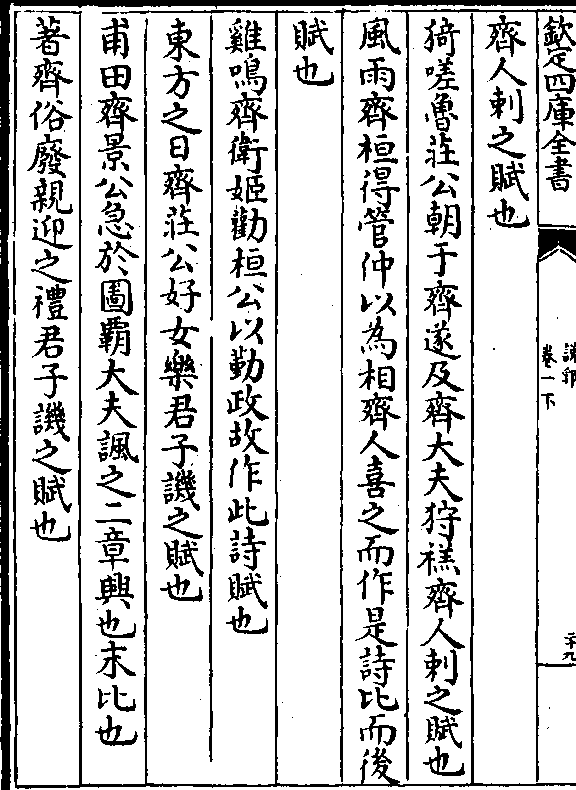 欽定四庫全書
卷一下
齊人刺之賦也
猗嗟魯莊公朝于齊遂及齊大夫狩禚齊人刺之賦也
風雨齊桓得管仲以為相齊人喜之而作是詩比而後
賦也
雞鳴齊衛姬勸桓公以勤政故作此詩賦也
東方之日齊莊公好女樂君子譏之賦也
甫田齊景公急於圖霸大夫諷之二章興也末比也
著齊俗廢親迎之禮君子譏之賦也